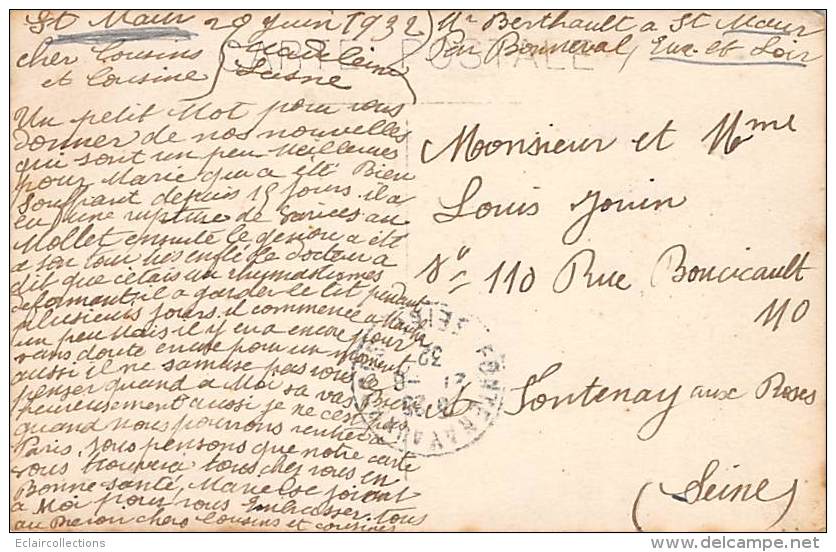 St Maur 20 juin 1932
Mr Berthault a St Maur
Par Bonneval, Eure et Loir
CARTE POSTALE
cher Cousins
et Cousine
Madeleine
Un petit Mot pour vous
donner de nos nouvelles
qui sont un peu Meilleures
pour Marie qui a été Bien
Souffrant depuis 15 jours. il a
eu une rupture de varices au
Mollet ensuite le genou a été
a son tour tres enflé le docteur a
dit que cetais un rhumatismes
deformant, il a garder le lit pendant
plusieurs jours. il commence a
un peu Mais il y en a encore pour
sans doute encore pour un moment
aussi il ne samuse pas vous le
penser quand a Moi sa vas Bien
heureusement aussi je ne ces pas
quand nous pourrons rentrer a
Paris, nous pensons que notre carte
vous trouvera tous chez vous en
Bonne santé, Marie se joient
a Moi pour vous Embrasser tous
au revoir chers Cousins et cousines
Monsieur et Mme
Louis Jouin
No 110 Rue Boucicault
110
Fontenay aux Roses
(Seine)
FONTENAY AUX ROSES
SEINE
21 -6
32
Eclaircollections
www.delcampe.net